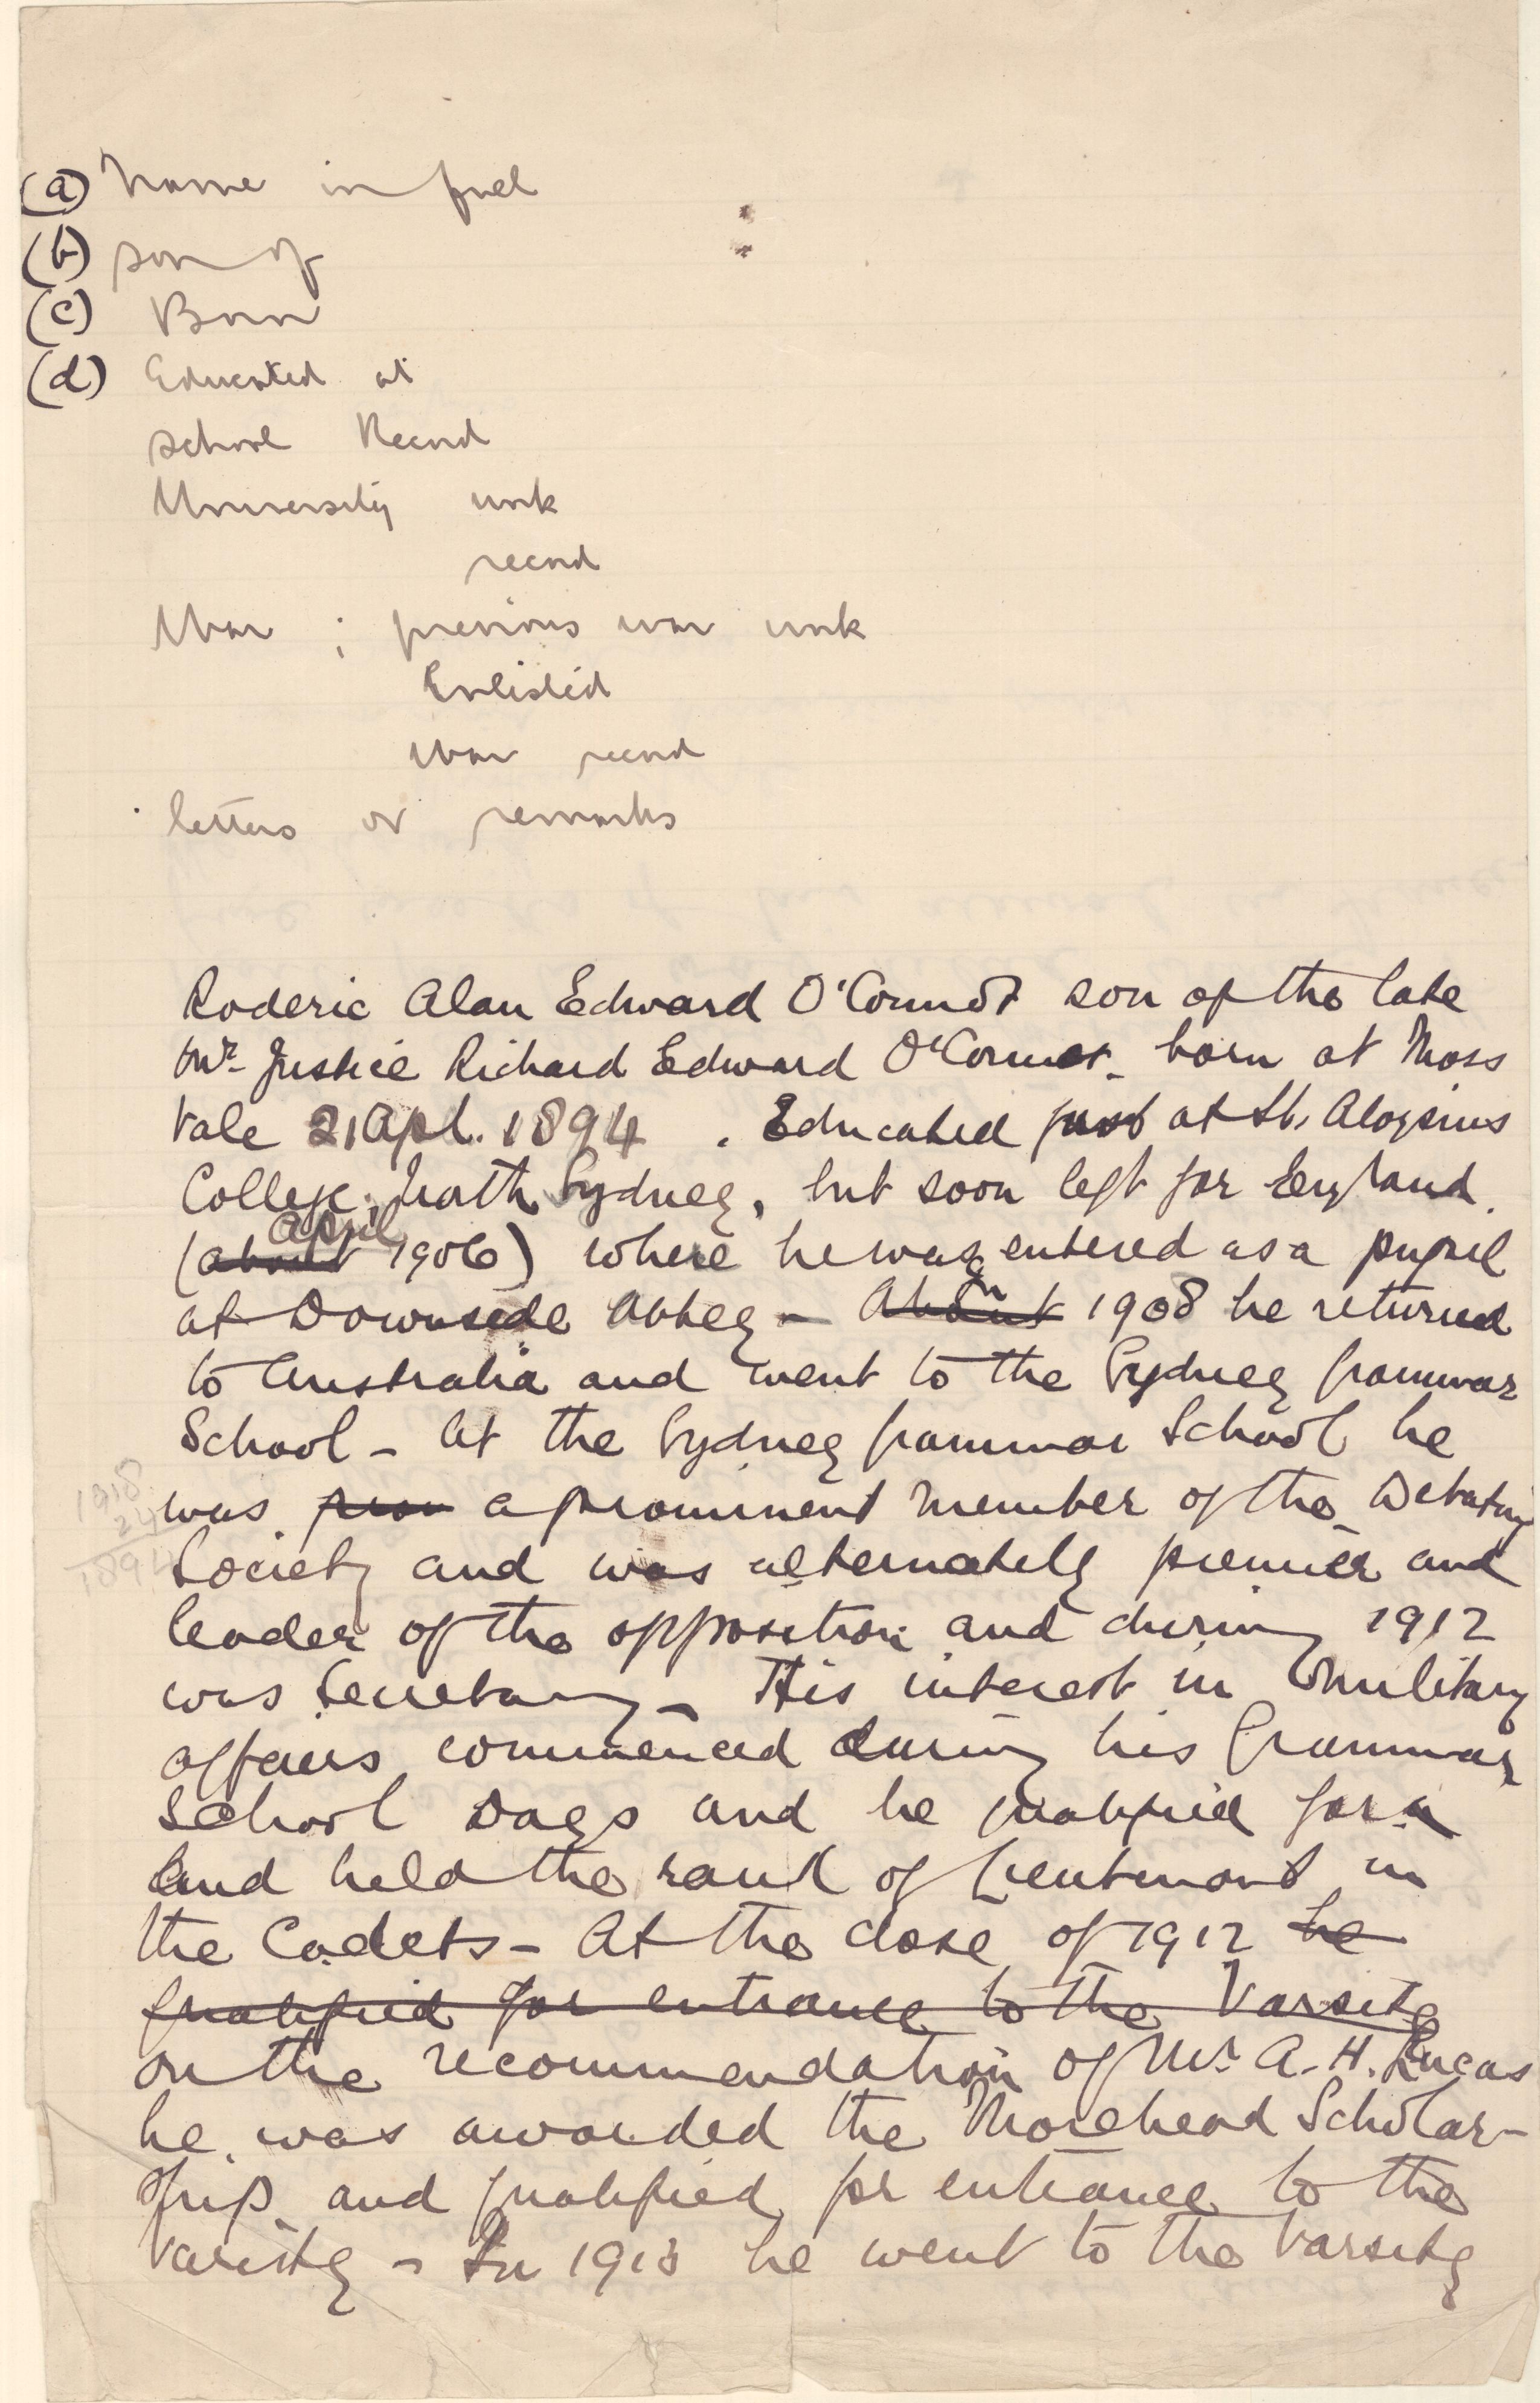 (a) Name in full
(b) son of
(c) Born
(d) Educated at
School Record
University work
record
War ; previous war work
Enlisted
War record
letters or remarks
Roderic Alan Edward O'Connor son of the late
Mr. Justice Richard Edward O'Connor. born at Moss
Vale 21 Apl. 1894. Educated first at St. Aloysius
College, North Sydney, but soon left for England.
April
(about 1906) where he was entered as a pupil
In
at Downside Abbey - About 1908 he returned
to Australia and went to the Sydney Grammar
School - At the Sydney Grammar School he
1918
24
1894
was prom a prominent member of the Debating
Society and was alternately premier and
leader of the opposition and during 1912
was Secretary - His interest in military
affairs commenced during his Grammar
School Days and he qualified for
and held the rank of Lieutenant in
the Cadets - At the close of 1912 he
qualified for entrance to the Varsity
on the recommendation of Mr. A. H. Lucas
he was awarded the Morehead Scholar-
ship and qualified for entrance to the
Varsity - In 1913 he went to the Varsity